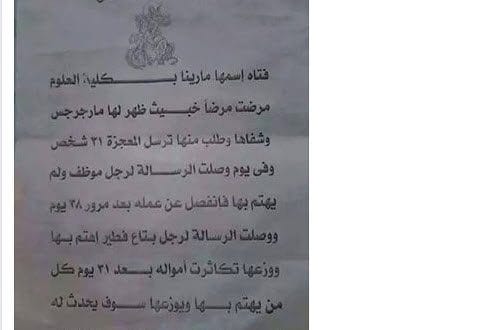 فتاه إسمها مارينا بكلية العلوم
مرضت مرضاً خبيث ظهر لها مارجرجس
وشفاها وطلب منها ترسل المعجزة ٣١ شخص
وفى يوم وصلت الرسالة لرجل موظف ولم
يهتم بها فإنفصل عن عمله بعد مرور ٣٨ يوم
ووصلت الرسالة لرجل بتاع فطير إهتم بها
ووزعها تكاثرت أمواله بعد ٣١ يوم كل
من يهتم بها ويوزعها سوف يحدث له